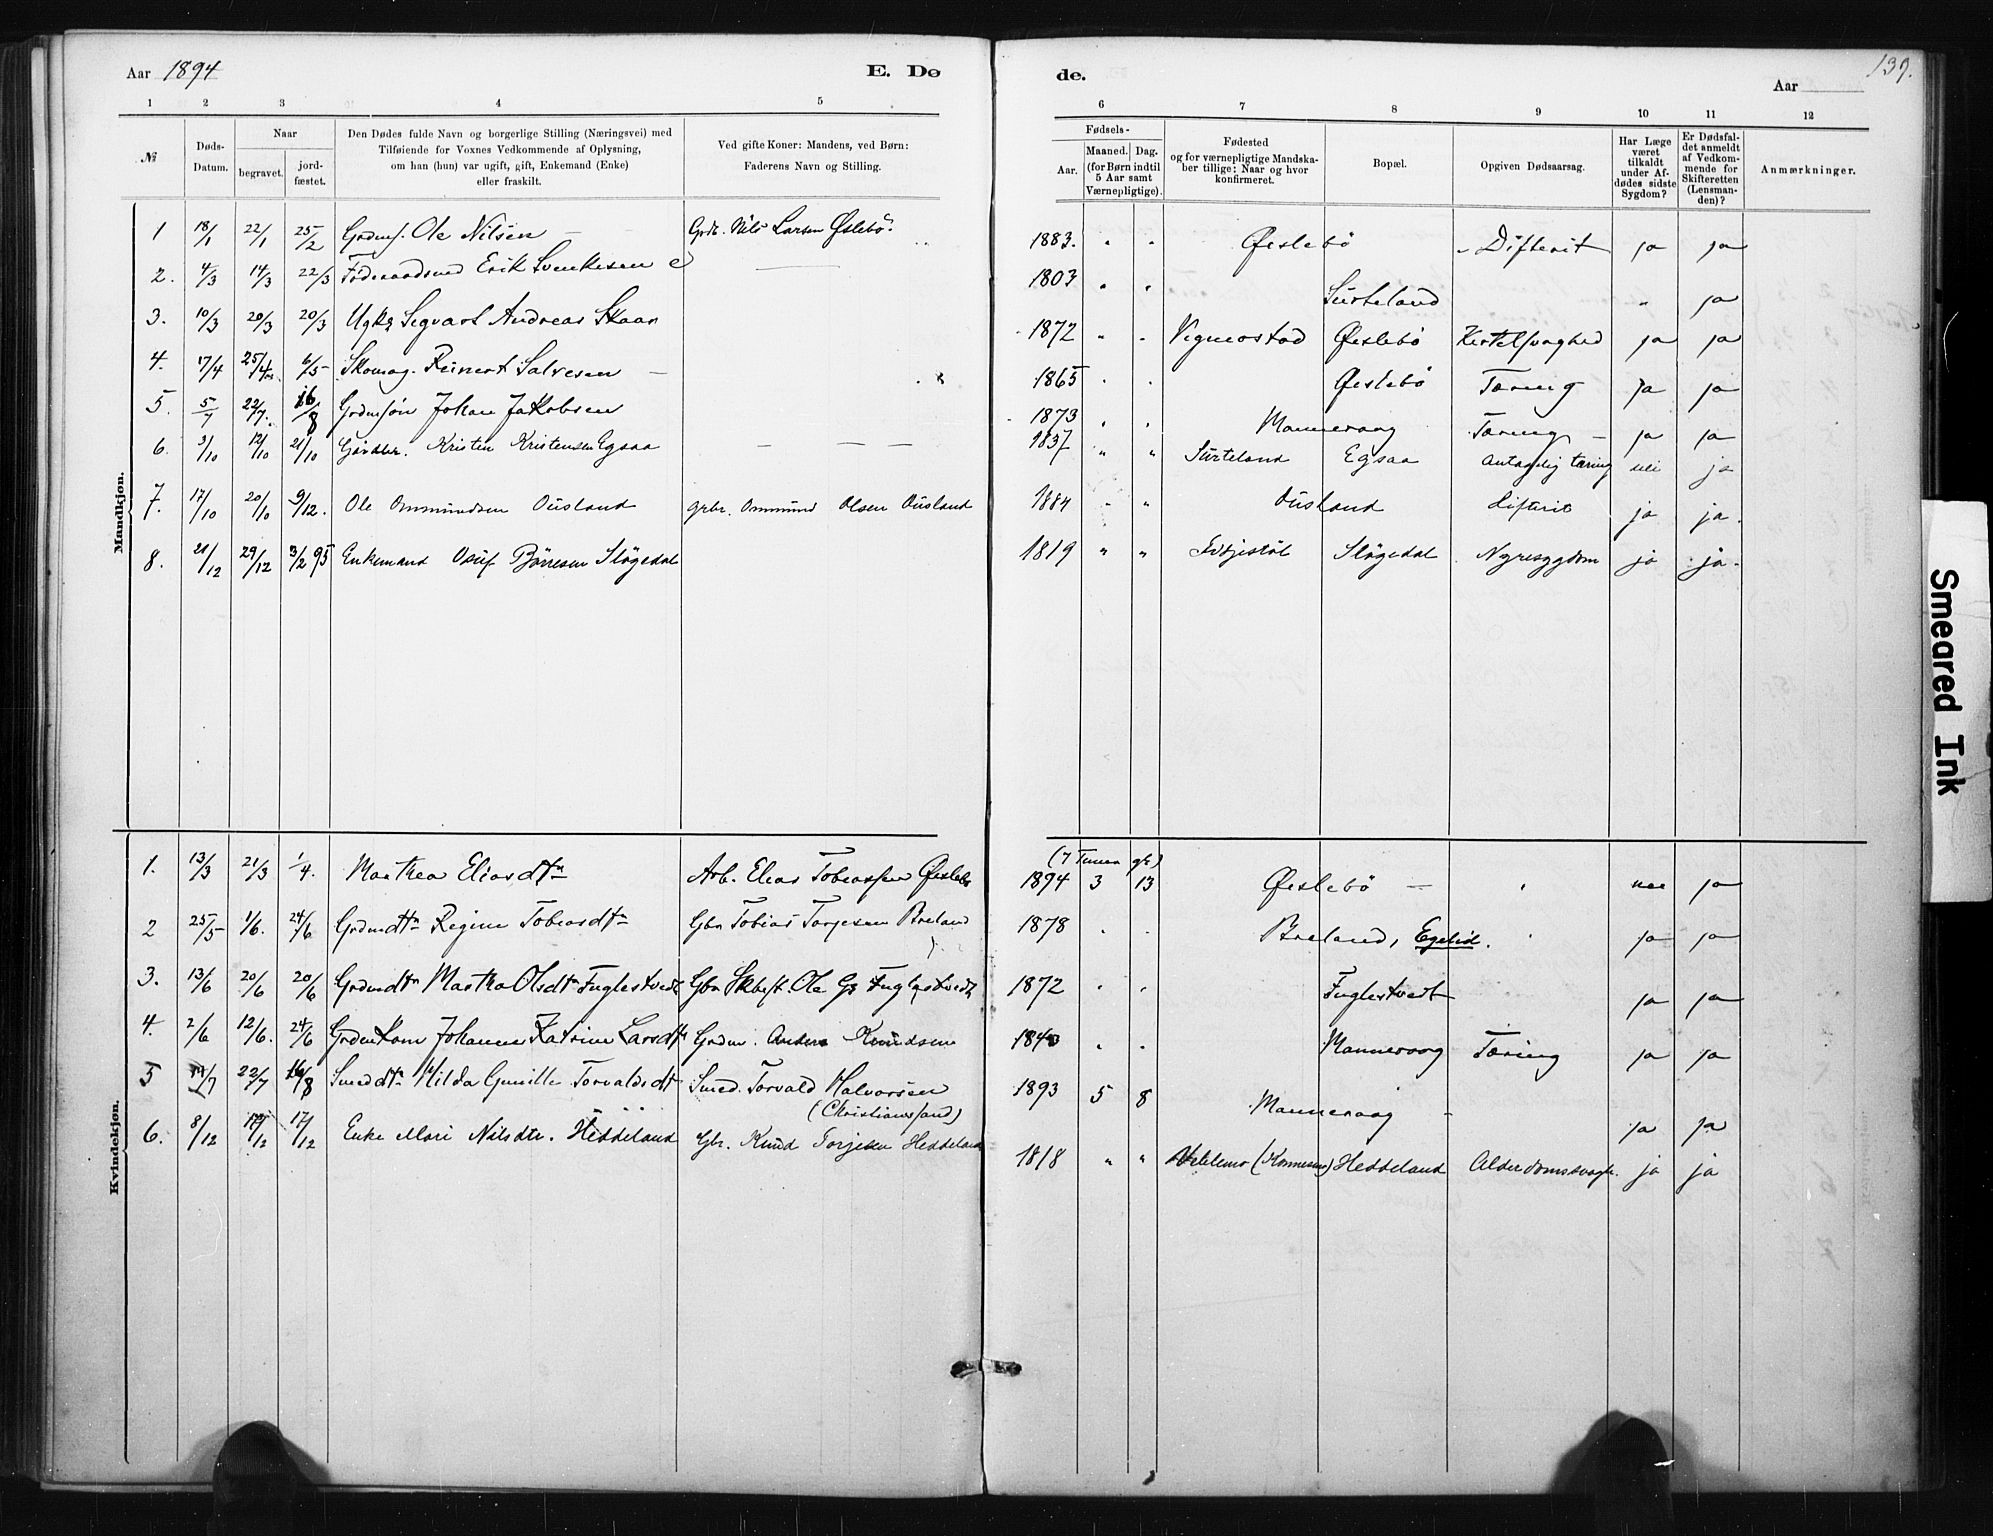 Aar 1894
E. Dø
de.
Aar
139.
1 2 3 4 5
6 7 8 9 10 11 12
№
Døds-Datum.
Naar
begravet.
jordfæstet.
Den Dødes fulde Navn og borgerlige Stilling (Næringsvei) med
Tilføiende for Voxnes Vedkommende af Oplysning,
om han (hun) var ugift, gift, Enkemand (Enke)
eller fraskilt.
Ved gifte Koner: Mandens, ved Børn:
Faderens Navn og Stilling.
Fødsels-
Aar.
Maaned. Dag.
(for Børn indtil
5 Aar samt
Værnepligtige).
Fødested
og for værnepligtige Mandska-
ber tillige: Naar og hvor
konfirmeret.
Bopæl.
Opgiven Dødsaarsag.
Har Læge
været
tilkaldt
under Af-
dødes sidste
Sygdom?
Er Dødsfal-
det anmeldt
af Vedkom-
mende for
Skifteretten
(Lensman-
den)?
Anmærkninger.
Mandkjøn.
1 18/1 22/1 25/2 Grdms. Ole Nilsen — Grdb. Nils Larsen Øslebö 1883. " " Øslebö Difterit ja ja
2. 4/3 14/3 22/3 Föderaadsmd Erik Svenkesen — 1803 " " Surteland " ja
3. 10/3 20/3 20/3 Ugkr Segvart Andreas Skaar 1872 " " Vigmostad Øislebö Kertelsvaghed ja ja
4. 17/4 25/4 6/5 Skomag. Reinert Salvesen — 1865 " " Øislebö Tæring ja ja
5. 5/7 22/7. 16/8 Grdmsøn Johan Jakobsen 1873 " " Manneraag Tæring — ja ja
6. 3/10 12/10 21/10 Gårdbr. Kristen Kristensen Egsaa — — — 1837 " " Surteland Egsaa Antagelig tæring nei ja
7. 17/10 20/10 9/12. Ole Ommundsen Ousland grbr. Ommund Olsen Ousland 1884 " " Ousland difterit ja ja.
8. 21/12 29/12 3/2 95 Enkemand Osuf Börresen Slögedal 1819 " " Slögedal Nyresygdom ja ja.
Kvindekjøn.
(7 Timer gl.)
1. 13/3 21/3 1/4. Marthea Eliasdtr Arb. Elias Tobiassen Øislebö 1894 3 13 Øislebö — " nei ja
2 25/5 1/6. 24/6 Grdmdtr Regine Tobiasdtr Gbr Tobias Torjesen Breland 1878 " " Breland, Egelid. " ja ja
3. 13/6 20/6 20/6 Grdmdtr Martha Olsdtr Fuglestvedt Gbr Skbest. Ole Gs Fuglestvedt 1872 " " Fuglestvedt ja ja
4. 2/6 12/6. 24/6 Grdmkom Johanne Katrine Larsdtr Grdm. Anders Knudsen " " Manneraag Tæring ja ja
5 22/7 16/8 Smeddtr Hilda Gunille Torvaldsdtr Smed. Torvald Halvorsen 1893 5 8 Manneraag — ja ja
(Christianssand)
6. 8/12 17/12 17/12 Enke Mari Nilsdtr. Heddeland Gbr. Knud Torjesen Heddeland 1818 " " Heddeland Alderdomssvagh. ja ja
Smeared Ink